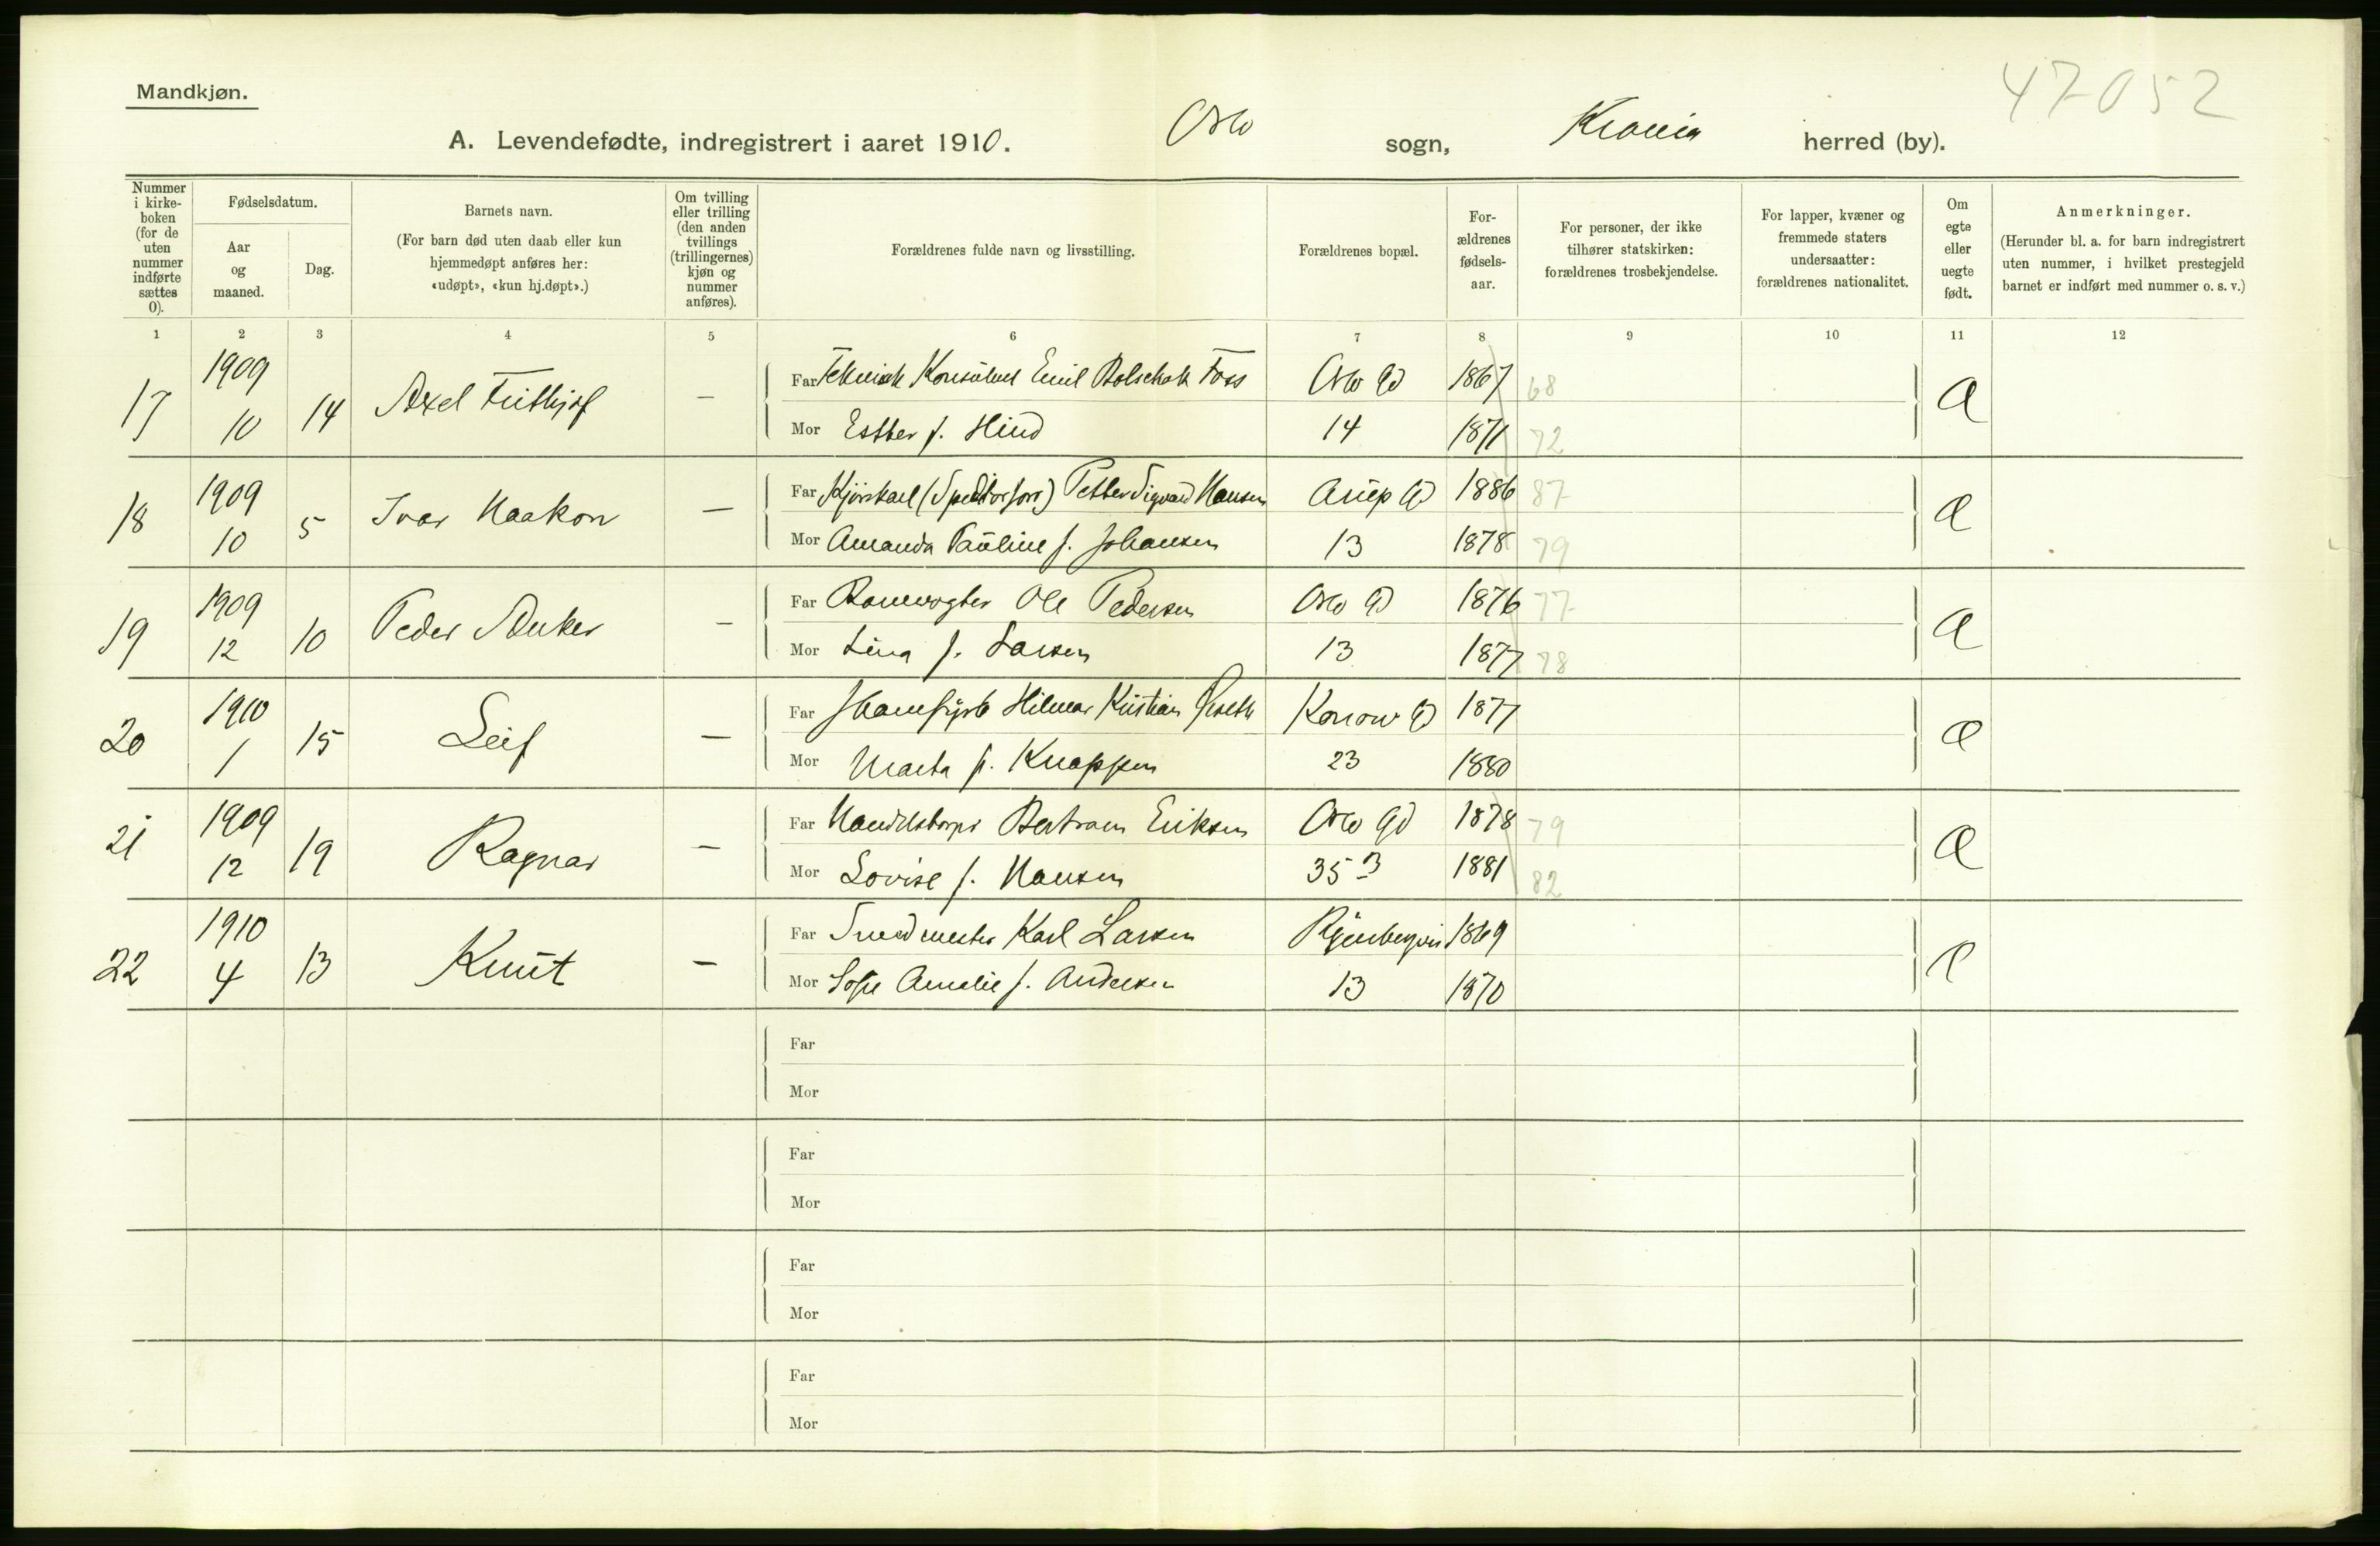 47052
Mandkjøn.
A. Levendefødte, indregistrert i aaret 1910. Oslo sogn, Krania herred (by).
Nummer i kirke-boken (for de uten nummer indførte sættes 0).
Fødselsdatum.
Aar og maaned.
Dag.
Barnets navn.
(For barn død uten daab eller kun hjemmedøpt anføres her: «udøpt», «kun hj.døpt».)
Om tvilling eller trilling (den anden tvillings (trillingernes) kjøn og nummer anføres).
Forældrenes fulde navn og livsstilling.
Forældrenes bopæl.
For-ældrenes fødsels-aar.
For personer, der ikke tilhører statskirken: forældrenes trosbekjendelse.
For lapper, kvæner og fremmede staters undersaatter: forældrenes nationalitet.
Om egte eller uegte født.
Anmerkninger.
(Herunder bl. a. for barn indregistrert uten nummer, i hvilket prestegjeld barnet er indført med nummer o. s. v.)
1 2 3 4 5 6 7 8 9 10 11 12
17 1909 10 14 Axel Frithjof —
Far Teknisk Konsulent Emil Foss Oslo Gd 1867 68
Mor Esther f. Hind 14 1871 72
Æ
18 1909 10 5 Ivar Haakon —
Far Kjørekarl (Speditørforr) Petter Sigvard Hansen Arup Gd 1886 87
Mor Amanda Pauline f. Johansen 13 1878 79
Æ
19 1909 12 10 Peder Anker —
Far Banevogter Ole Pedersen Oslo Gd 1876 77
Mor Lina f. Larsen 13 1877 78
Æ
20 1910 1 15 Leif —
Far Hilmar Kristian Konow Gd 1877
Mor Marta f. Knappen 23 1880
Æ
21 1909 12 19 Ragnar —
Far Handelsborger Bertram Eriksen Oslo Gd 1878 79
Mor Lovise f. Hansen 35 B 1881 82
Æ
22 1910 4 13 Knut —
Far Smedmester Karl Larsen 1869
Mor Sofie Amalie f. Andersen 13 1870
Æ
Far
Mor
Far
Mor
Far
Mor
Far
Mor